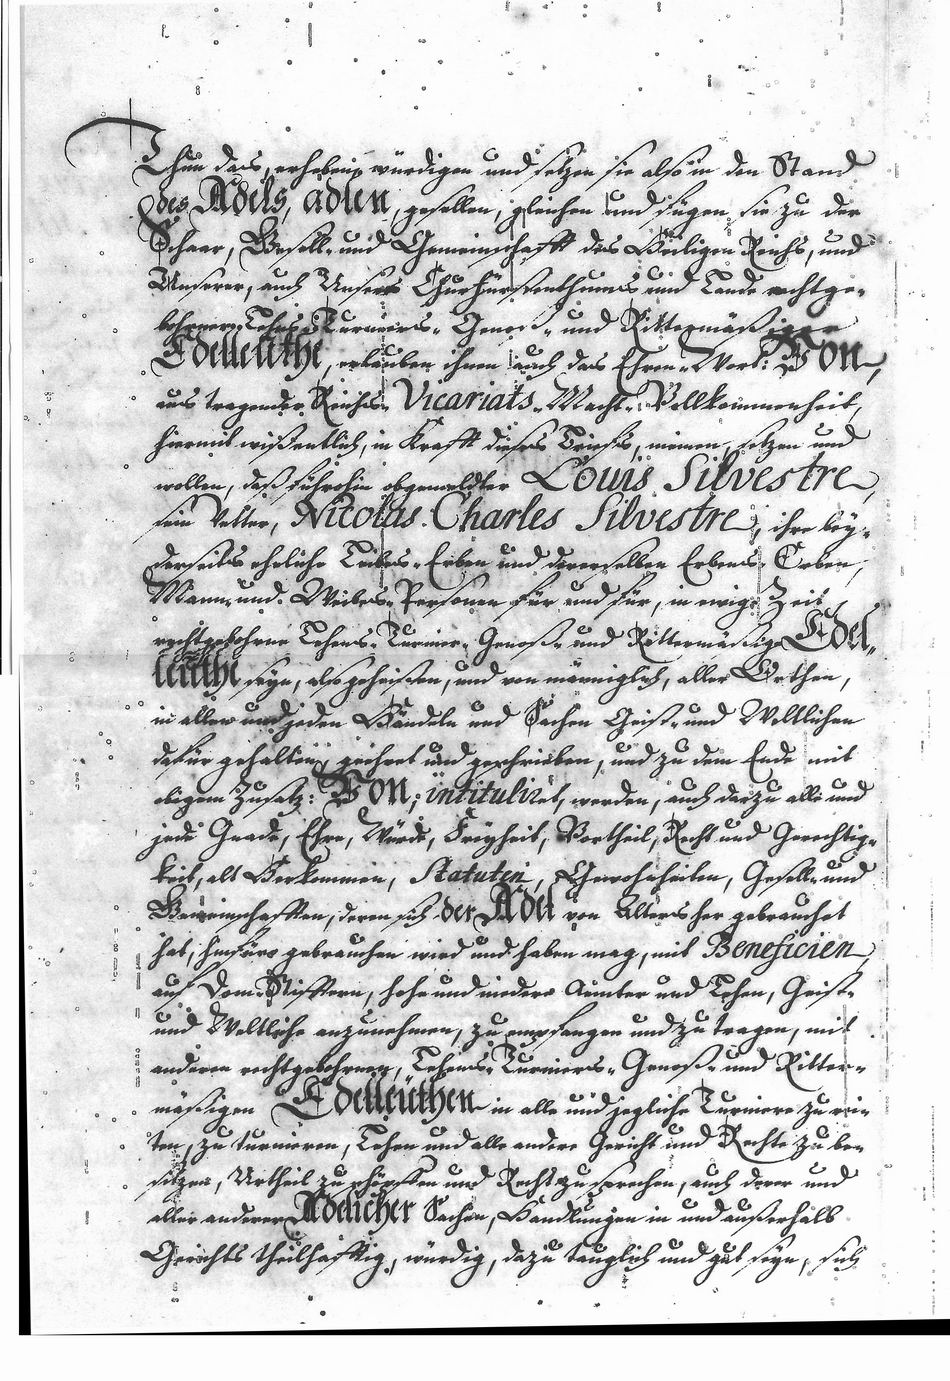 Thun das, erheben, würdigen und setzen sie also in den Stand
des Adels, adlen, gesellen, gleichen und fügen sie zu der
Schaar, Gesell- und Gemeinschafft des Heiligen Reichs, und
Unserer, auch Unsers Churfürstenthums und Lande rechtge-
bohrnen Lehens-Turniers-Genoß- und Rittermäßigen
Edelleuthe, erlauben ihnen auch das Ehren-Wort: Von,
aus tragender Reichs-Vicariats-Macht-Vollkommenheit,
hiermit wißentlich, in Krafft dieses Briefs, meinen, setzen und
wollen, daß führohin obgemeldter Louis Silvestre,
sein Vetter, Nicolas Charles Silvestre, ihre bey-
derseits eheliche Leibes-Erben und derenselben Erbens-Erben,
Mann- und Weibes-Personen für und für, in ewige Zeit
rechtgebohrne Lehens-Turnier-Genoß- und Rittermäßige Edel-
leuthe seyn, also geheißen, und von männiglich, aller Orthen,
in allen und jeden Händeln und Sachen Geist- und Weltlichen
dafür gehalten, geehret und geschrieben, und zu dem Ende mit
obigem Zusatz: Von, intituliret, werden, auch darzu alle und
jede Gnade, Ehre, Würde, Freyheit, Vortheil, Recht und Gerechtig-
keit, alt Herkommen, Statuten, Gewohnheiten, Gesell- und
Gemeinschafften, deren sich der Adel von Alters her gebrauchet
hat, hinführo gebrauchen wird und haben mag, mit Beneficien
auf Dom-Stifftern, hohe und niedere Aemter und Lehen, Geist-
und Weltliche anzunehmen, zu empfangen und zu tragen, mit
anderen rechtgebohrnen, Lehens-Turniers-Genoß- und Ritter-
mäßigen Edelleüthen in alle und jegliche Turniere zu rei-
ten, zu turnieren, Lehen und alle andere Gericht und Rechte zu be-
sitzen, Urtheil zu schöpffen und Recht zu sprechen, auch derer und
aller anderer Adelicher Sachen, Handlungen in und außerhalb
Gerichts theilhafftig, würdig, dazu tauglich und gut seyn, sich